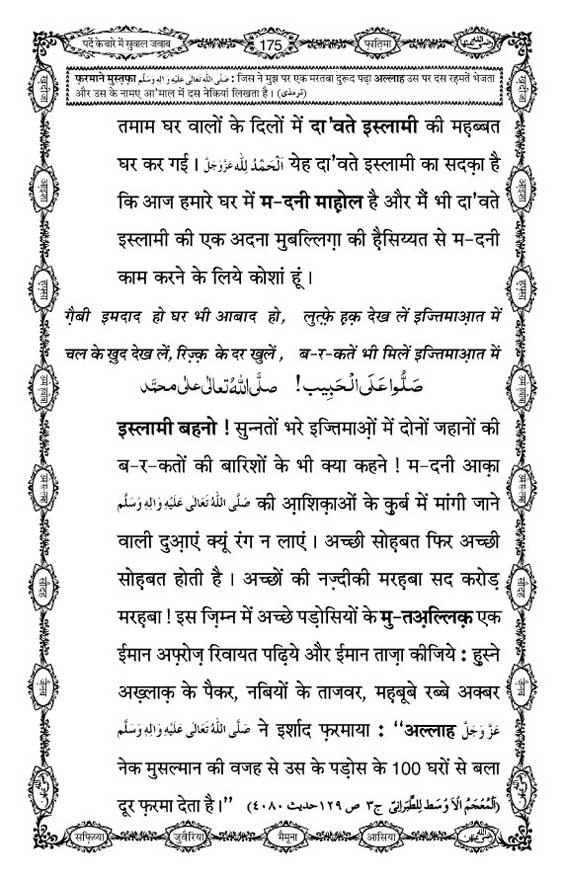 पर्दे के बारे में सुवाल जवाब
175
फ़ातिमा
फ़रमाने मुस्त़फ़ा صَلَّى اللهُ تَعَالٰى عَلَيْهِ وَاٰلِهٖ وَسَلَّم : जिस ने मुझ पर एक मरतबा दुरूद पढ़ा अल्लाह उस पर दस रहमतें भेजता
और उस के नामए आ'माल में दस नेकियां लिखता है। (ترمذی)
तमाम घर वालों के दिलों में दा'वते इस्लामी की महब्बत
घर कर गई। اَلْحَمْدُ لِلّٰه عَزَّوَجَلَّ येह दा'वते इस्लामी का सदक़ा है
कि आज हमारे घर में म-दनी माह़ोल है और मैं भी दा'वते
इस्लामी की एक अदना मुबल्लिग़ा की हैसिय्यत से म-दनी
काम करने के लिये कोशां हूं।
ग़ैबी इमदाद हो घर भी आबाद हो, लुत्फ़े ह़क़ देख लें इज्तिमाआ़त में
चल के ख़ुद देख लें, रिज़्क़ के दर खुलें, ब-र-कतें भी मिलें इज्तिमाआ़त में
صَلُّوا عَلَى الْحَبِيب! صلَّى اللهُ تعالٰى على محمَّد
इस्लामी बहनो ! सुन्नतों भरे इज्तिमाओ़ं में दोनों जहानों की
ब-र-कतों की बारिशों के भी क्या कहने ! म-दनी आक़ा
صَلَّى اللهُ تَعَالٰى عَلَيْهِ وَاٰلِهٖ وَسَلَّم की आ़शिक़ाओं के क़ुर्ब में मांगी जाने
वाली दुआ़एं क्यूं रंग न लाएं। अच्छी सोह़बत फिर अच्छी
सोह़बत होती है। अच्छों की नज़्दीकी मरह़बा सद करोड़
मरह़बा ! इस ज़िम्न में अच्छे पड़ोसियों के मु-तअ़ल्लिक़ एक
ईमान अफ़्रोज़ रिवायत पढ़िये और ईमान ताज़ा कीजिये : हुस्ने
अख़्लाक़ के पैकर, नबियों के ताजवर, महबूबे रब्बे अक्बर
صَلَّى اللهُ تَعَالٰى عَلَيْهِ وَاٰلِهٖ وَسَلَّم ने इर्शाद फ़रमाया : ‘‘अल्लाह عَزَّ وَجَلَّ
नेक मुसल्मान की वजह से उस के पड़ोस के 100 घरों से बला
दूर फ़रमा देता है।’’ (اَلْمُعْجَمُ الْاَوْسَط لِلطَّبَرَانِىّ ج۳ ص ۱۲۹ حدیث ۴۰۸۰)
सफ़िय्या
जुवैरिया
मैमूना
आसिया